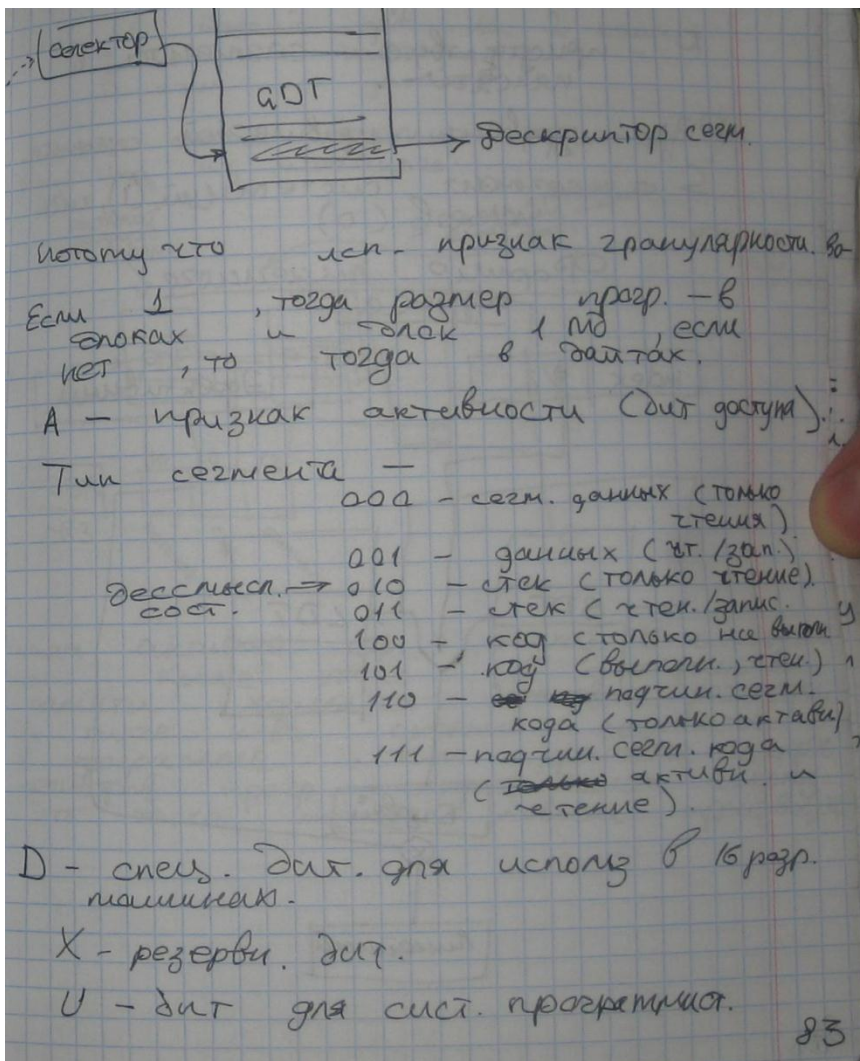 селектор
GDT
Дескриптор сегм.
потому что исп. - признак гранулярности.
Если 1 , тогда размер прогр. - в
блоках и блок 1 Мб , если
нет , то тогда в байтах.
А - признак активности (бит доступа).
Тип сегмента -
000 - сегм. данных (только
чтения)
001 - данных (чт. /зап.)
бессмысл. → 010 - стек (только чтение).
сост. 011 - стек ( чтен./запис.
100 - код (только на выполн.
101 - код (выполн., чтен.)
110 - подчин. сегм.
кода (только активн)
111 - подчин. сегм. кода
(только активн. и
чтение).
D - спец. бит. для использ в 16 разр.
машинах.
X - резервн. бит.
U - бит для сист. программист.
83